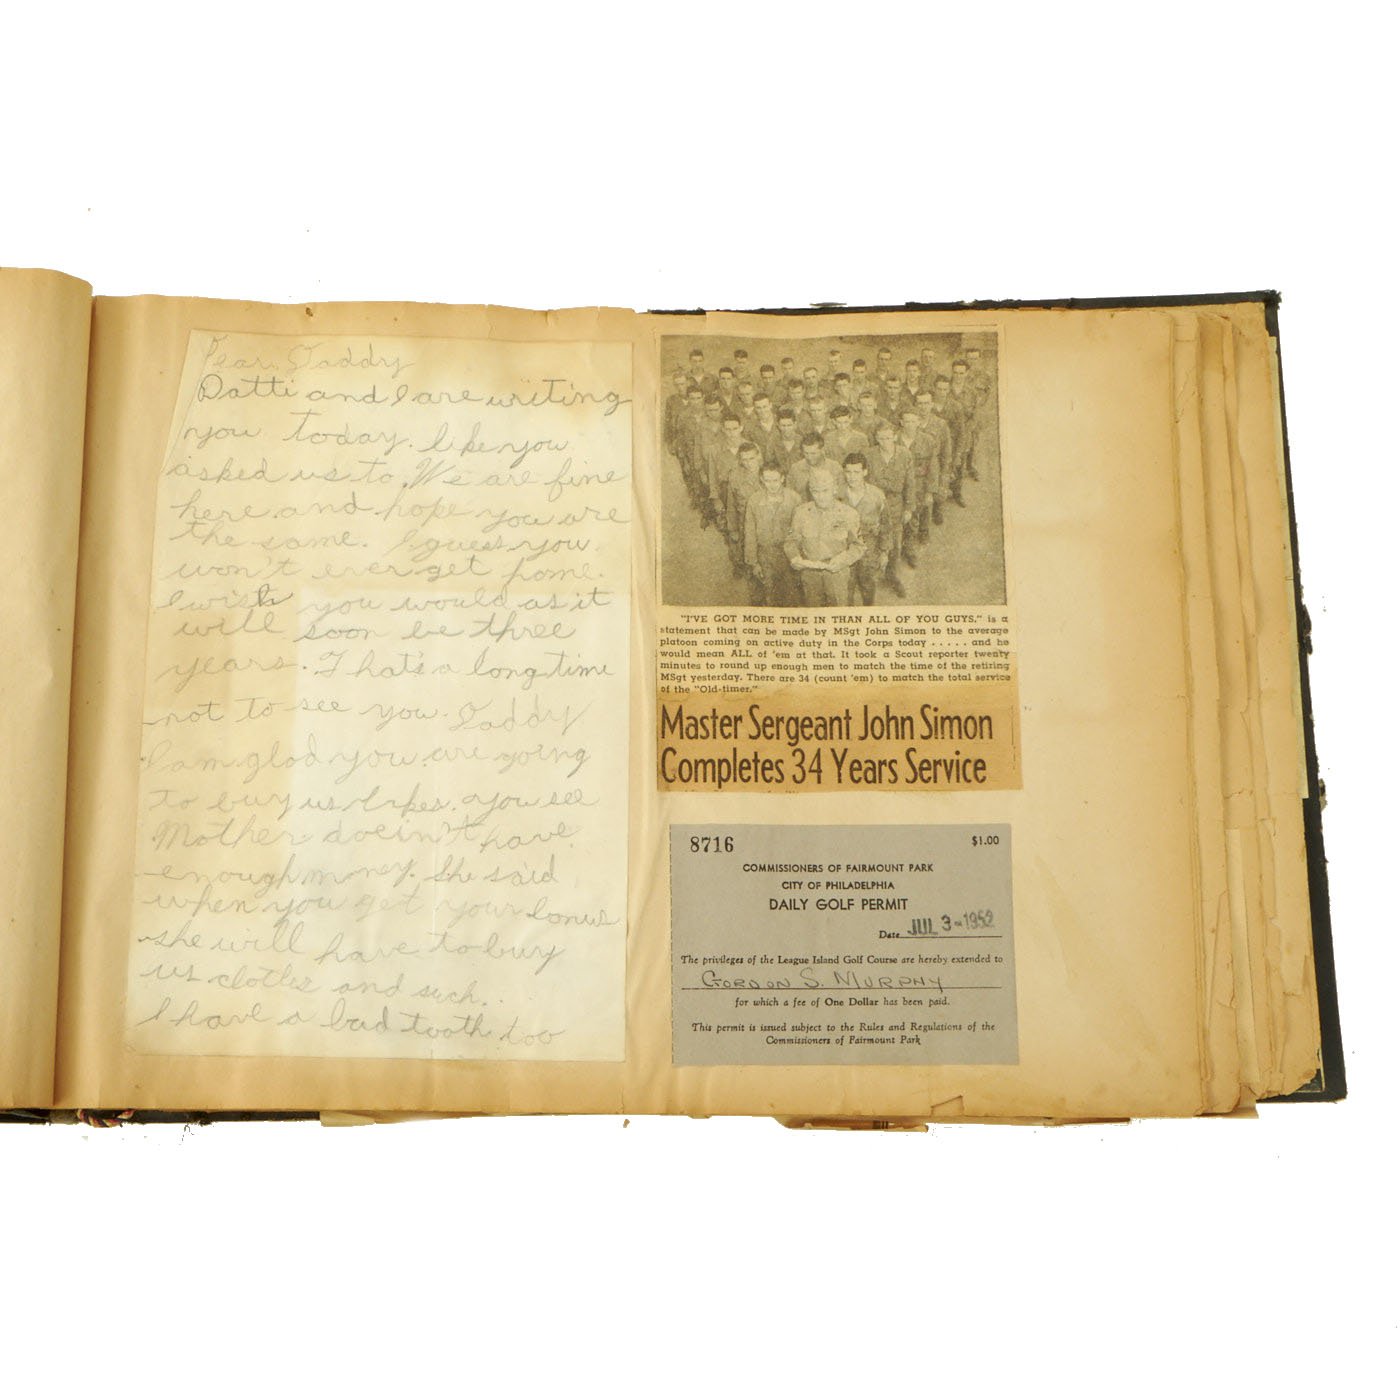 Dear Daddy
Patti and I are writing
you today. like you
asked us to. We are fine
here and hope you are
the same. I guess you
won't ever get home.
I wish you would as it
will soon be three
years. That's a long time
not to see you. Daddy
I am glad you are going
to buy us bikes. you see
Mother doesn't have
enough money. She said
when you get your bonus
she will have to buy
us clothes and such.
I have a bad tooth too
"I'VE GOT MORE TIME IN THAN ALL OF YOU GUYS," is a
statement that can be made by MSgt John Simon to the average
platoon coming on active duty in the Corps today . . . . . and he
would mean ALL of 'em at that. It took a Scout reporter twenty
minutes to round up enough men to match the time of the retiring
MSgt yesterday. There are 34 (count 'em) to match the total service
of the "Old-timer."
Master Sergeant John Simon
Completes 34 Years Service
8716 $1.00
COMMISSIONERS OF FAIRMOUNT PARK
CITY OF PHILADELPHIA
DAILY GOLF PERMIT
Date JUL 3-1952
The privileges of the League Island Golf Course are hereby extended to
GORDON S. MURPHY
for which a fee of One Dollar has been paid.
This permit is issued subject to the Rules and Regulations of the
Commissioners of Fairmount Park